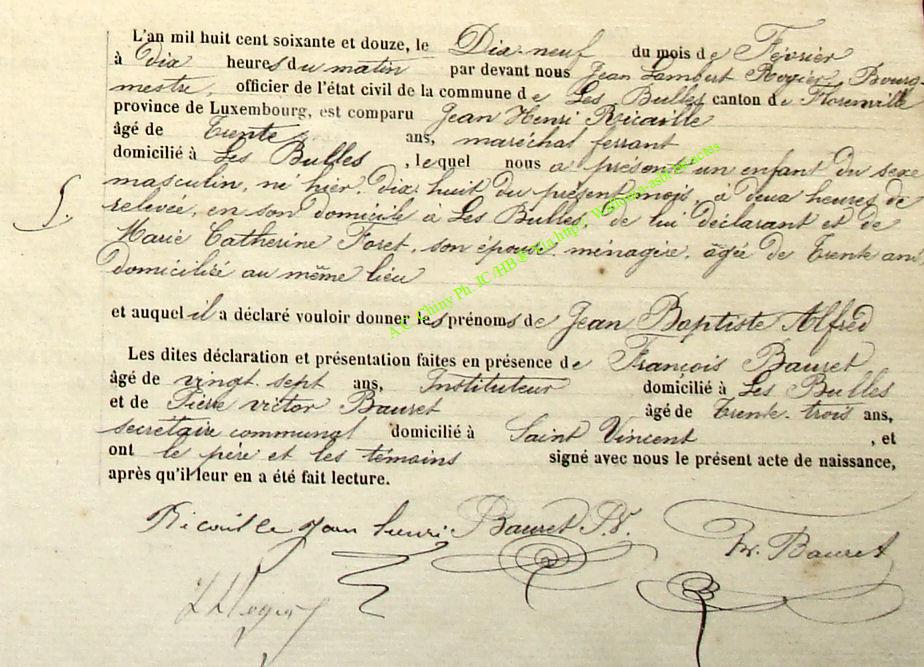 L'an mil huit cent soixante et douze, le Dix-neuf du mois de Février
à dix heures du matin par devant nous Jean Lambert Rogier, Bourg-
mestre, officier de l'état civil de la commune de Les Bulles canton de Florenville
province de Luxembourg, est comparu Jean Henri Ricaille
âgé de Trente ans, maréchal ferrant
domicilié à Les Bulles, lequel nous a présenté un enfant du sexe
5.
masculin, né hier, dix-huit du présent mois, à deux heures de
relevée, en son domicile à Les Bulles, de lui déclarant et de
Marie Catherine Foret, son épouse, ménagère, âgée de Trente ans
domiciliée au même lieu
A.C. Chiny Ph. JC /HB
et auquel il a déclaré vouloir donner les prénoms de Jean Baptiste Alfred
Les dites déclaration et présentation faites en présence de François Bauret
âgé de vingt-sept ans, Instituteur domicilié à Les Bulles
et de Pierre victor Bauret âgé de Trente-trois ans,
secrétaire communal domicilié à Saint Vincent, et
ont le père et les témoins signé avec nous le présent acte de naissance,
après qu'il leur en a été fait lecture.
Bauret P.V.
Fr. Bauret